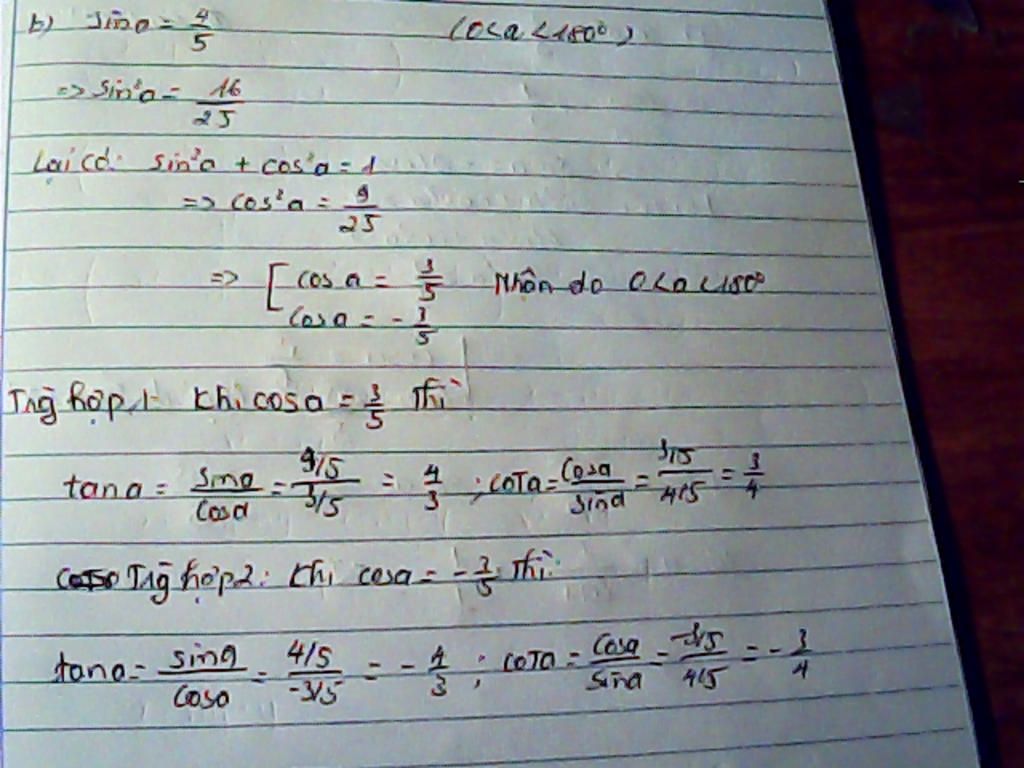 b) sina = 4/5 (0<a<180°)
=> sin²a = 16/25
Lại có: sin²a + cos²a = 1
=> cos²a = 9/25
=> [ cos a = 3/5 Nhận do 0<a<180°
cosa = - 3/5
Trg hợp 1: Khi cosa = 3/5 Thì
tan a = sina/cosa = 4/5/3/5 = 4/3 ; coTa = cosa/sina = 3/5/4/5 = 3/4
Trg hợp 2: Khi cosa = - 3/5 Thì:
tana = sina/cosa = 4/5/-3/5 = - 4/3 ; coTa = cosa/sina = -3/5/4/5 = - 3/4